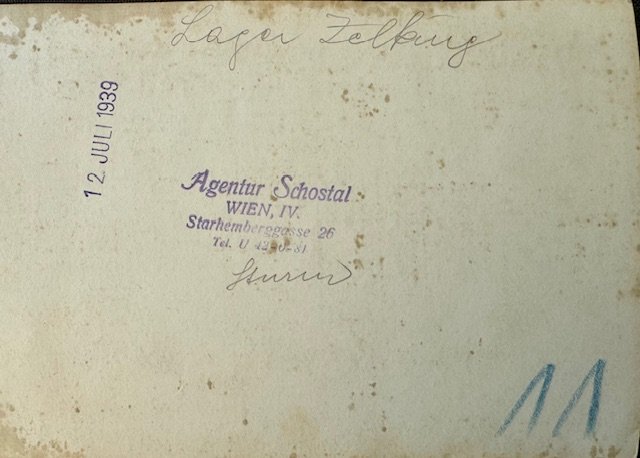 Lager Zelking
12. JULI 1939
Agentur Schostal
WIEN, IV.
Starhemberggasse 26
Tel. U
Sturm
11